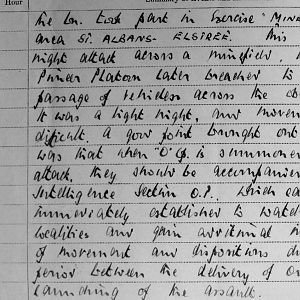 Hour
the Bn. took part in Exercise "MINE
area ST. ALBANS - ELSTREE. This
night attack across a minefield,
Pioneer Platoon later breached to
passage of vehicles across the
It was a light night, and movem
difficult. A good point brought out
was that when "O" Gp. is summoned
attack, they should be accompanied
Intelligence Section O.P., which
immediately established to watch
localities and gain additional
of movement and dispositions du
period between the delivery of O
launching of the assault.